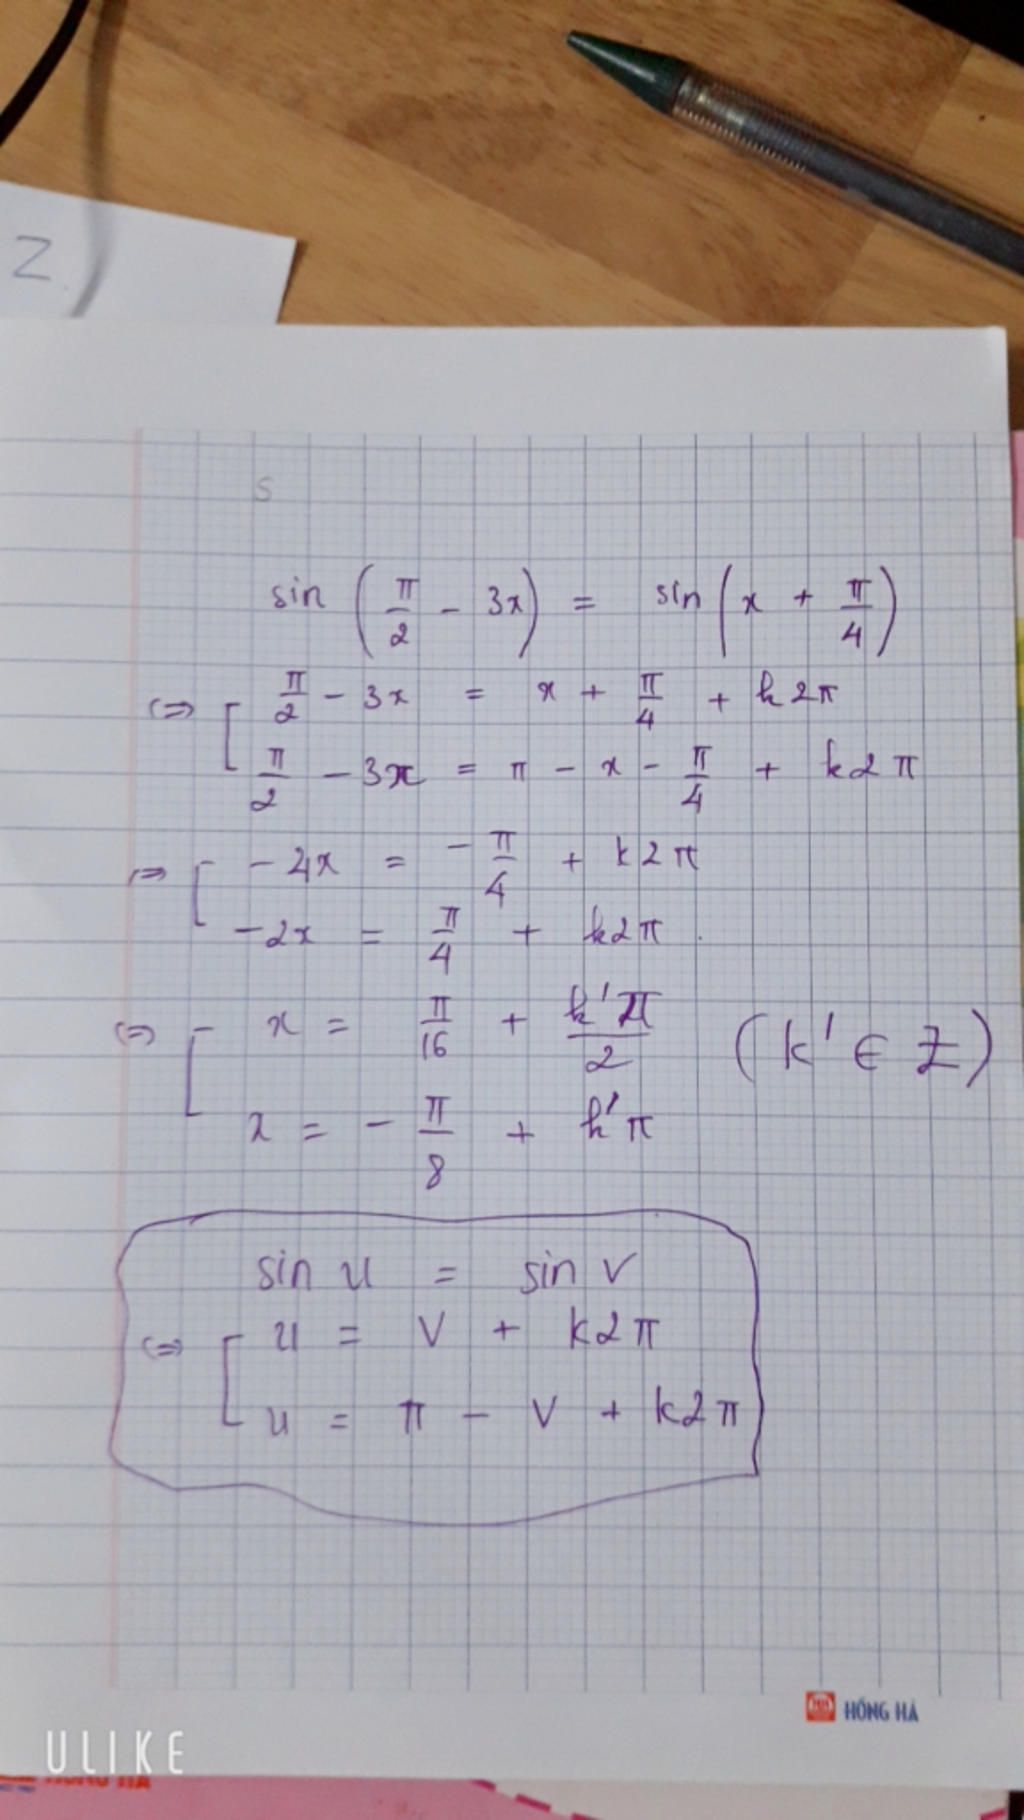 Z
s
sin (π/2 - 3x) = sin (x + π/4)
⇔ [ π/2 - 3x = x + π/4 + k2π
π/2 - 3x = π - x - π/4 + k2π
⇔ [ -4x = -π/4 + k2π
-2x = π/4 + k2π
⇔ [ x = π/16 + k'π/2 (k' ∈ Z)
x = -π/8 + k'π
sin u = sin v
⇔ [ u = v + k2π
u = π - v + k2π
HỒNG HÀ
ULIKE
HONG HA